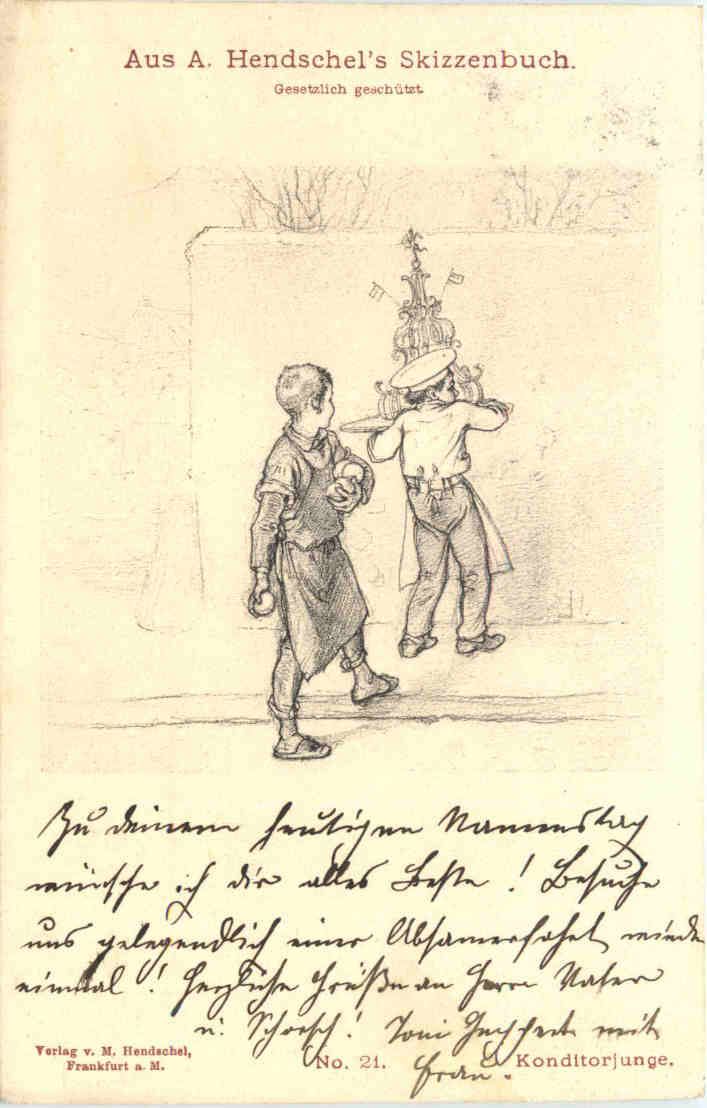 Aus A. Hendschel's Skizzenbuch.
Gesetzlich geschützt.
Zu deinem heutigen Namenstag
wünsche ich dir alles Beste! Besuche
uns gelegendlich einer Absamerfahrt wieder
einmal! Herzliche Grüße an Herrn Vater
u. Schorsch! Toni mit
Frau.
Verlag v. M. Hendschel,
Frankfurt a. M.
No. 21.
Konditorjunge.